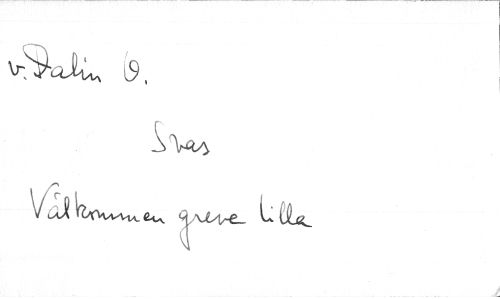 v. Dalin O.
Svas
Välkommen greve lilla